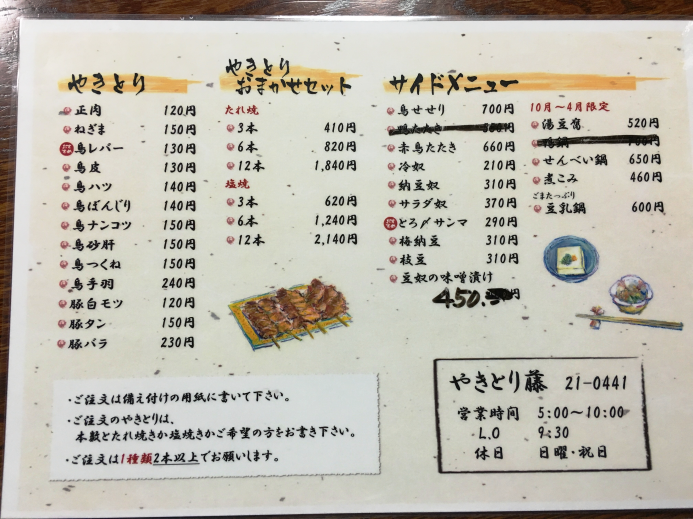 やきとり
正肉 120円
ねぎま 150円
鳥レバー 130円
鳥皮 130円
鳥ハツ 140円
鳥ぼんじり 140円
鳥ナンコツ 150円
鳥砂肝 150円
鳥つくね 150円
鳥手羽 240円
豚白モツ 120円
豚タン 150円
豚バラ 230円
やきとり
おまかせセット
たれ焼
3本 410円
6本 820円
12本 1,840円
塩焼
3本 620円
6本 1,240円
12本 2,140円
サイドメニュー
鳥せせり 700円
鴨たたき 800円
赤鳥たたき 660円
冷奴 210円
納豆奴 310円
サラダ奴 370円
とろ〆サンマ 290円
梅納豆 310円
枝豆 310円
豆奴の味噌漬け
450.円
10月〜4月限定
湯豆腐 520円
鴨鍋 700円
せんべい鍋 650円
煮こみ 460円
ごまたっぷり
豆乳鍋 600円
・ご注文は備え付けの用紙に書いて下さい。
・ご注文のやきとりは、
本数とたれ焼きか塩焼きかご希望の方をお書き下さい。
・ご注文は1種類2本以上でお願いします。
やきとり藤 21-0441
営業時間 5:00〜10:00
L.O 9:30
休日 日曜・祝日